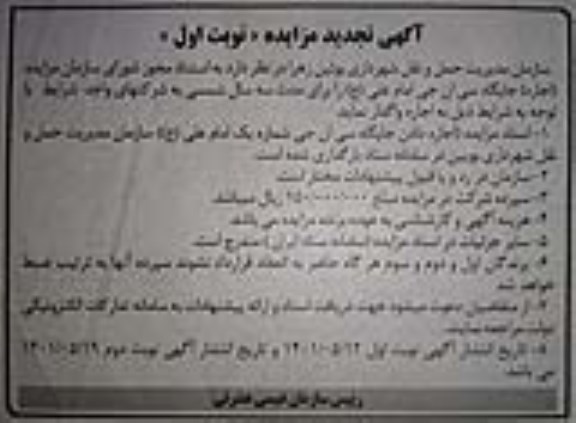 آگهی تجدید مزایده « نوبت اول »
سازمان مدیریت حمل و نقل شهرداری بوئین زهرا در نظر دارد به استناد مجوز شورای سازمان مزایده
(اجاره) جایگاه سی ان جی امام علی (ع) را برای مدت سه سال شمسی به شرکتهای واجد شرایط با
توجه به شرایط ذیل به اجاره واگذار نماید.
۱- اسناد مزایده (اجاره دادن جایگاه سی ان جی شماره یک امام علی (ع)) سازمان مدیریت حمل و
نقل شهرداری بویین در سامانه ستاد بارگذاری شده است.
۲- سازمان در رد و یا قبول پیشنهادات مختار است.
۳- سپرده شرکت در مزایده مبلغ ریال میباشد.
۴- هزینه آگهی و کارشناسی به عهده برنده مزایده می باشد.
۵- سایر جزئیات در اسناد مزایده (سامانه ستاد ایران) مندرج است.
۶- برندگان اول و دوم و سوم هر گاه حاضر به انعقاد قرارداد نشوند سپرده آنها به ترتیب ضبط
خواهد شد.
۷- از متقاضیان دعوت میشود جهت دریافت اسناد و ارائه پیشنهادات به سامانه تدارکات الکترونیکی
دولت مراجعه نمایند.
۸- تاریخ انتشار آگهی نوبت اول ۱۴۰۱/۰۵/۱۲ و تاریخ انتشار آگهی نوبت دوم ۱۴۰۱/۰۵/۱۹
می باشد.
رئیس سازمان